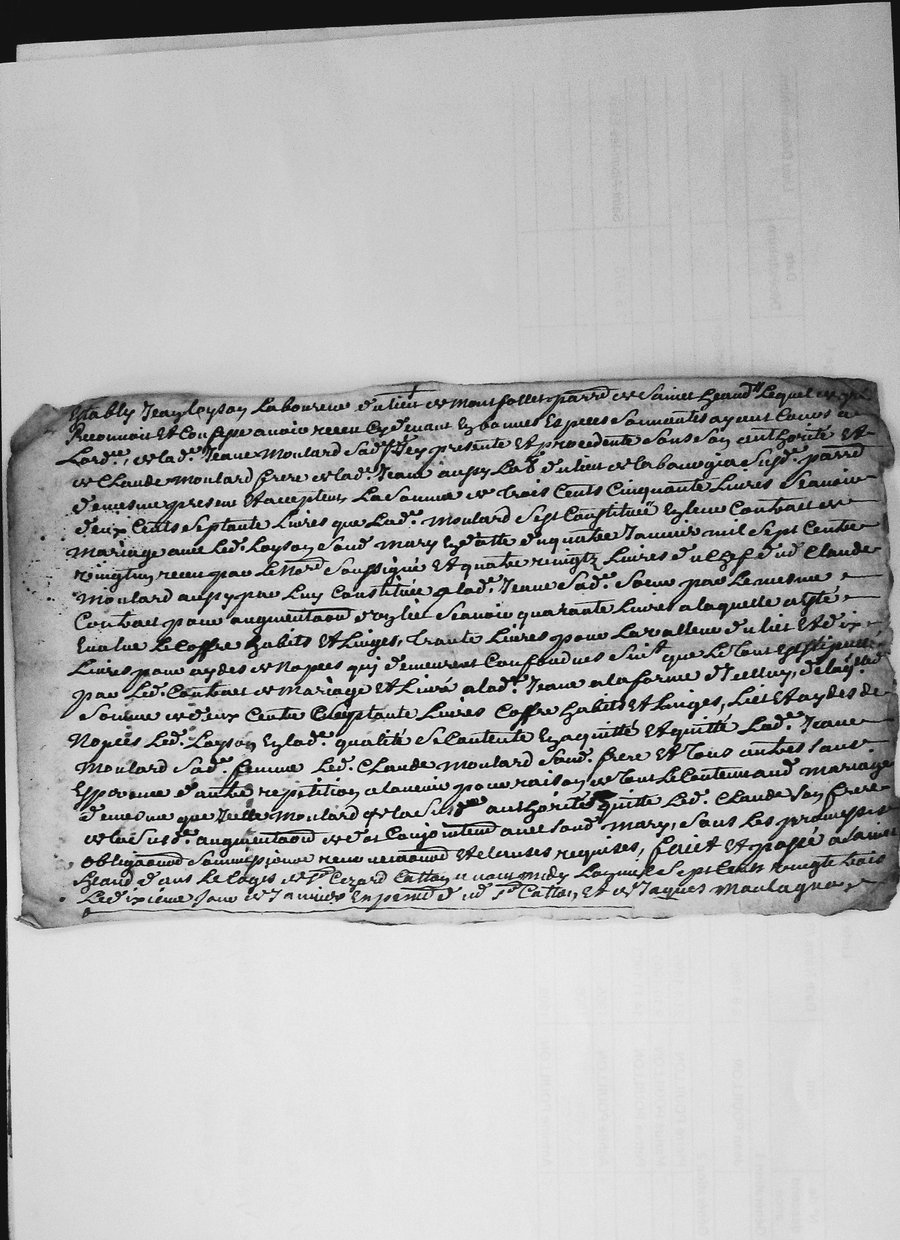 Estably Jean loyson Laboureur du lieu de monfollet parr͠e de Sainct heand Lequel de gré
Reconnoit Et Confesse avoir receu Cy devant En bonnes Especes Sonnantes ayant Cours a
Lord͠re, de lad͠e Jeane Moulard Sad͠e f͠e Icy presente Et procedente Sous Son authorité Et
de Claude Moulard frere de lad͠e Jeane aussy Lab͠r du lieu de la bourgia Susd͠e parr͠e
de mesme presens Et acceptans La Somme de trois Cents Cinquante Livres Scavoir
deux Cents Septante Livres que Lad͠e Moulard Sest Constituée En leur Contract de
Mariage avec Led͠ Loyson Sond͠ mary En datte du quatre Janvier mil Sept Cents
vingt un receu par Le No͠re Soussigné Et quatre vingtz Livres du Chef dud͠ Claude
Moulard aussy par Luy Constituée a lad͠e Jeane Sad͠e Soeur par Le mesme
Contract pour augmentaõn Scavoir quarante Livres a laquelle a esté
Evalué Le Coffre habits Et Linges, trante Livres pour La valleur du lict Et dix
Livres pour aydes de Nopces quy demeurent Confondues que Le tout Estipullé
par Led͠ Contract de Mariage Et Livré a lad͠e Jeane a la forme dicelluy, de laq͠le
Somme de deux Cents Septante Livres Coffre habits Et Linges, Lict Et aydes de
Nopces Led͠ Loyson En lad͠e qualité Se Contente En acquitté Et quitté Lad͠e Jeane
Moulard Sad͠e femme Led͠ Claude Moulard Sond͠ frere Et tous autres Sans
Esperence dautre repetition a lavenir pour raison de tout Le Contenu aud͠ mariage
de mesme que Icelle Moulard de la Susd͠e authorité quitte Led͠ Claude Son frere
de la Susd͠e augmentaõn de dot Conjointem͠t avec Sond͠ mary, Sans Les promesses
obligaõns Soumissions renonciaõns Et clauses requises, faict Et passé a Sainct
heand dans Le Logis de S͠r Cezard Catton Lan mil Sept Cents vingts trois
Le dixieme Jour de Janvier En presence dud͠ S͠r Catton, Et de Jaques Moulagnon